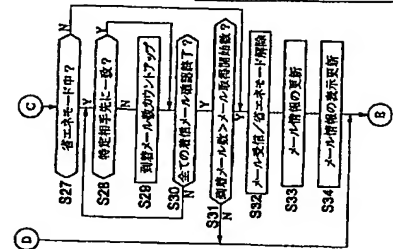 C
S27 省エネモード中? N
Y
S28 特定相手先に一致? Y
N
S29 到着メール数カウントアップ
S30 全ての着信メール確認終了?
N
Y
S31 到着メール数>メール取得開始数?
N
Y
S32 メール受信/省エネモード解除
S33 メール情報の更新
S34 メール情報の表示更新
D
B